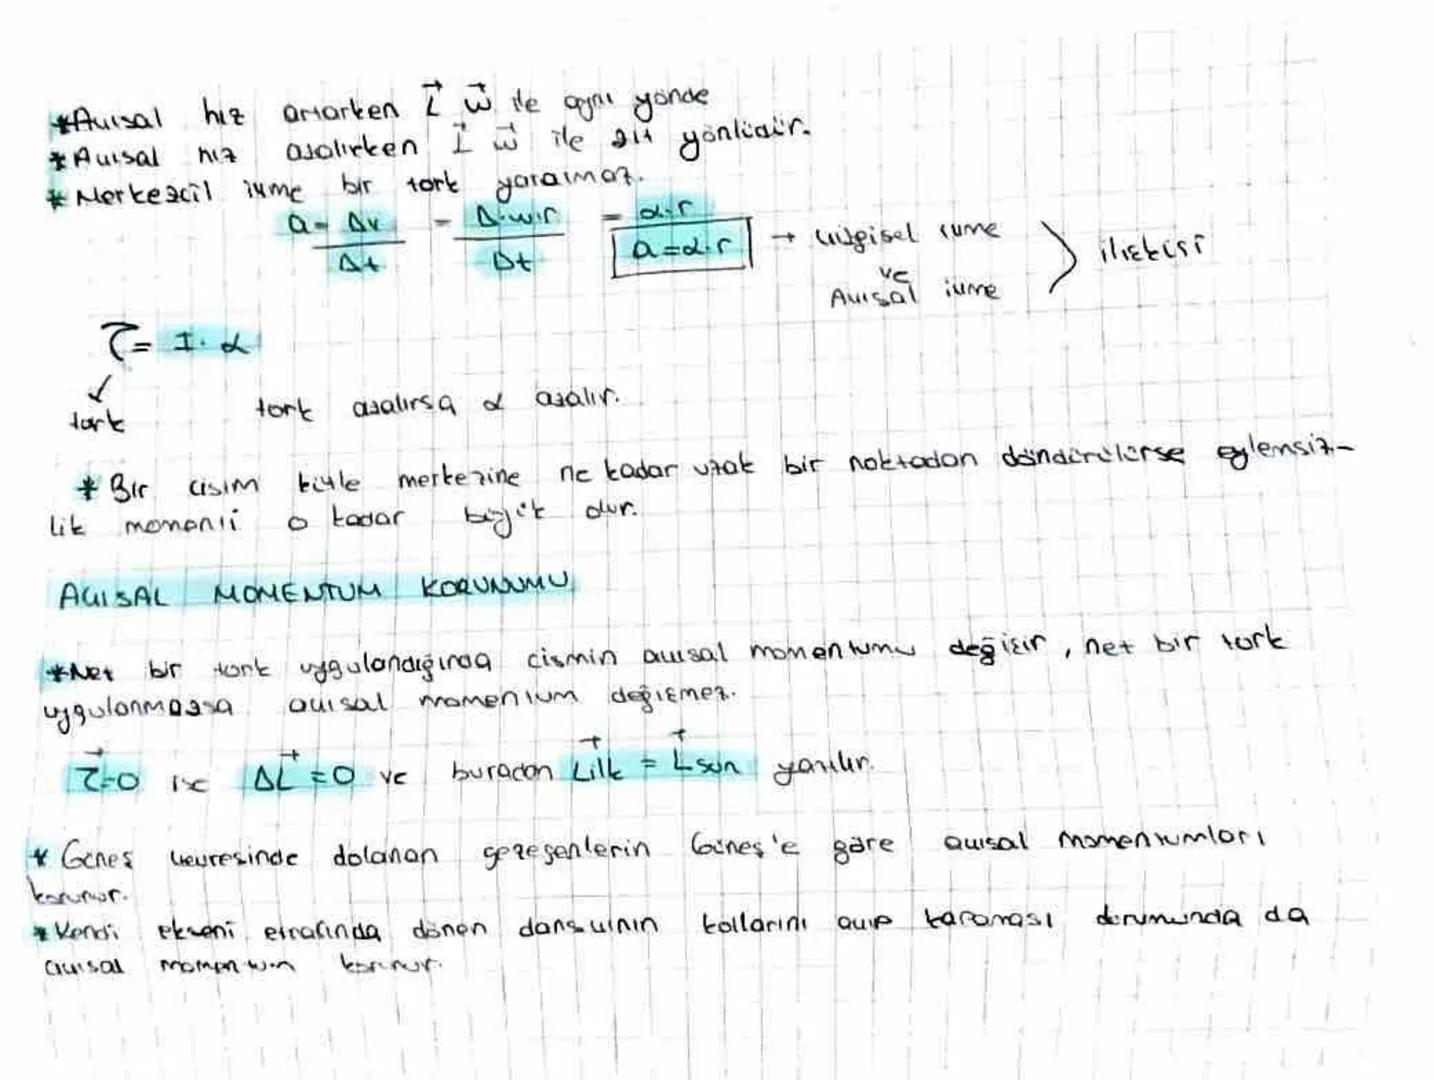 *Açısal hız artarken L⃗ w⃗ ile aynı yönde
*Açısal hız azalırken L⃗ w⃗ ile zıt yönlüdür.
*Merkezcil ivme bir tork yaratmaz.
a = Δv/Δt = Δ.w.r/Δt = α.r
a=α.r → Çizgisel ivme ve Açısal ivme ) ilişkisi
τ = I.α
↓
tork
tork azalırsa α azalır.
* Bir cisim kütle merkezine ne kadar uzak bir noktadan döndürülürse eylemsiz-
lik momenti o kadar büyük olur.
AÇISAL MOMENTUM KORUNUMU
*Net bir tork uygulandığında cismin açısal momentumu değişir, net bir tork
uygulanmazsa açısal momentum değişmez.
τ⃗=0 ise ΔL⃗=0 ve buradan L⃗ilk = L⃗son yazılır.
* Güneş çevresinde dolanan gezegenlerin Güneş'e göre açısal momentumları
korunur.
* Kendi ekseni etrafında dönen dansçının kollarını açıp kapaması durumunda da
açısal momentum korunur.